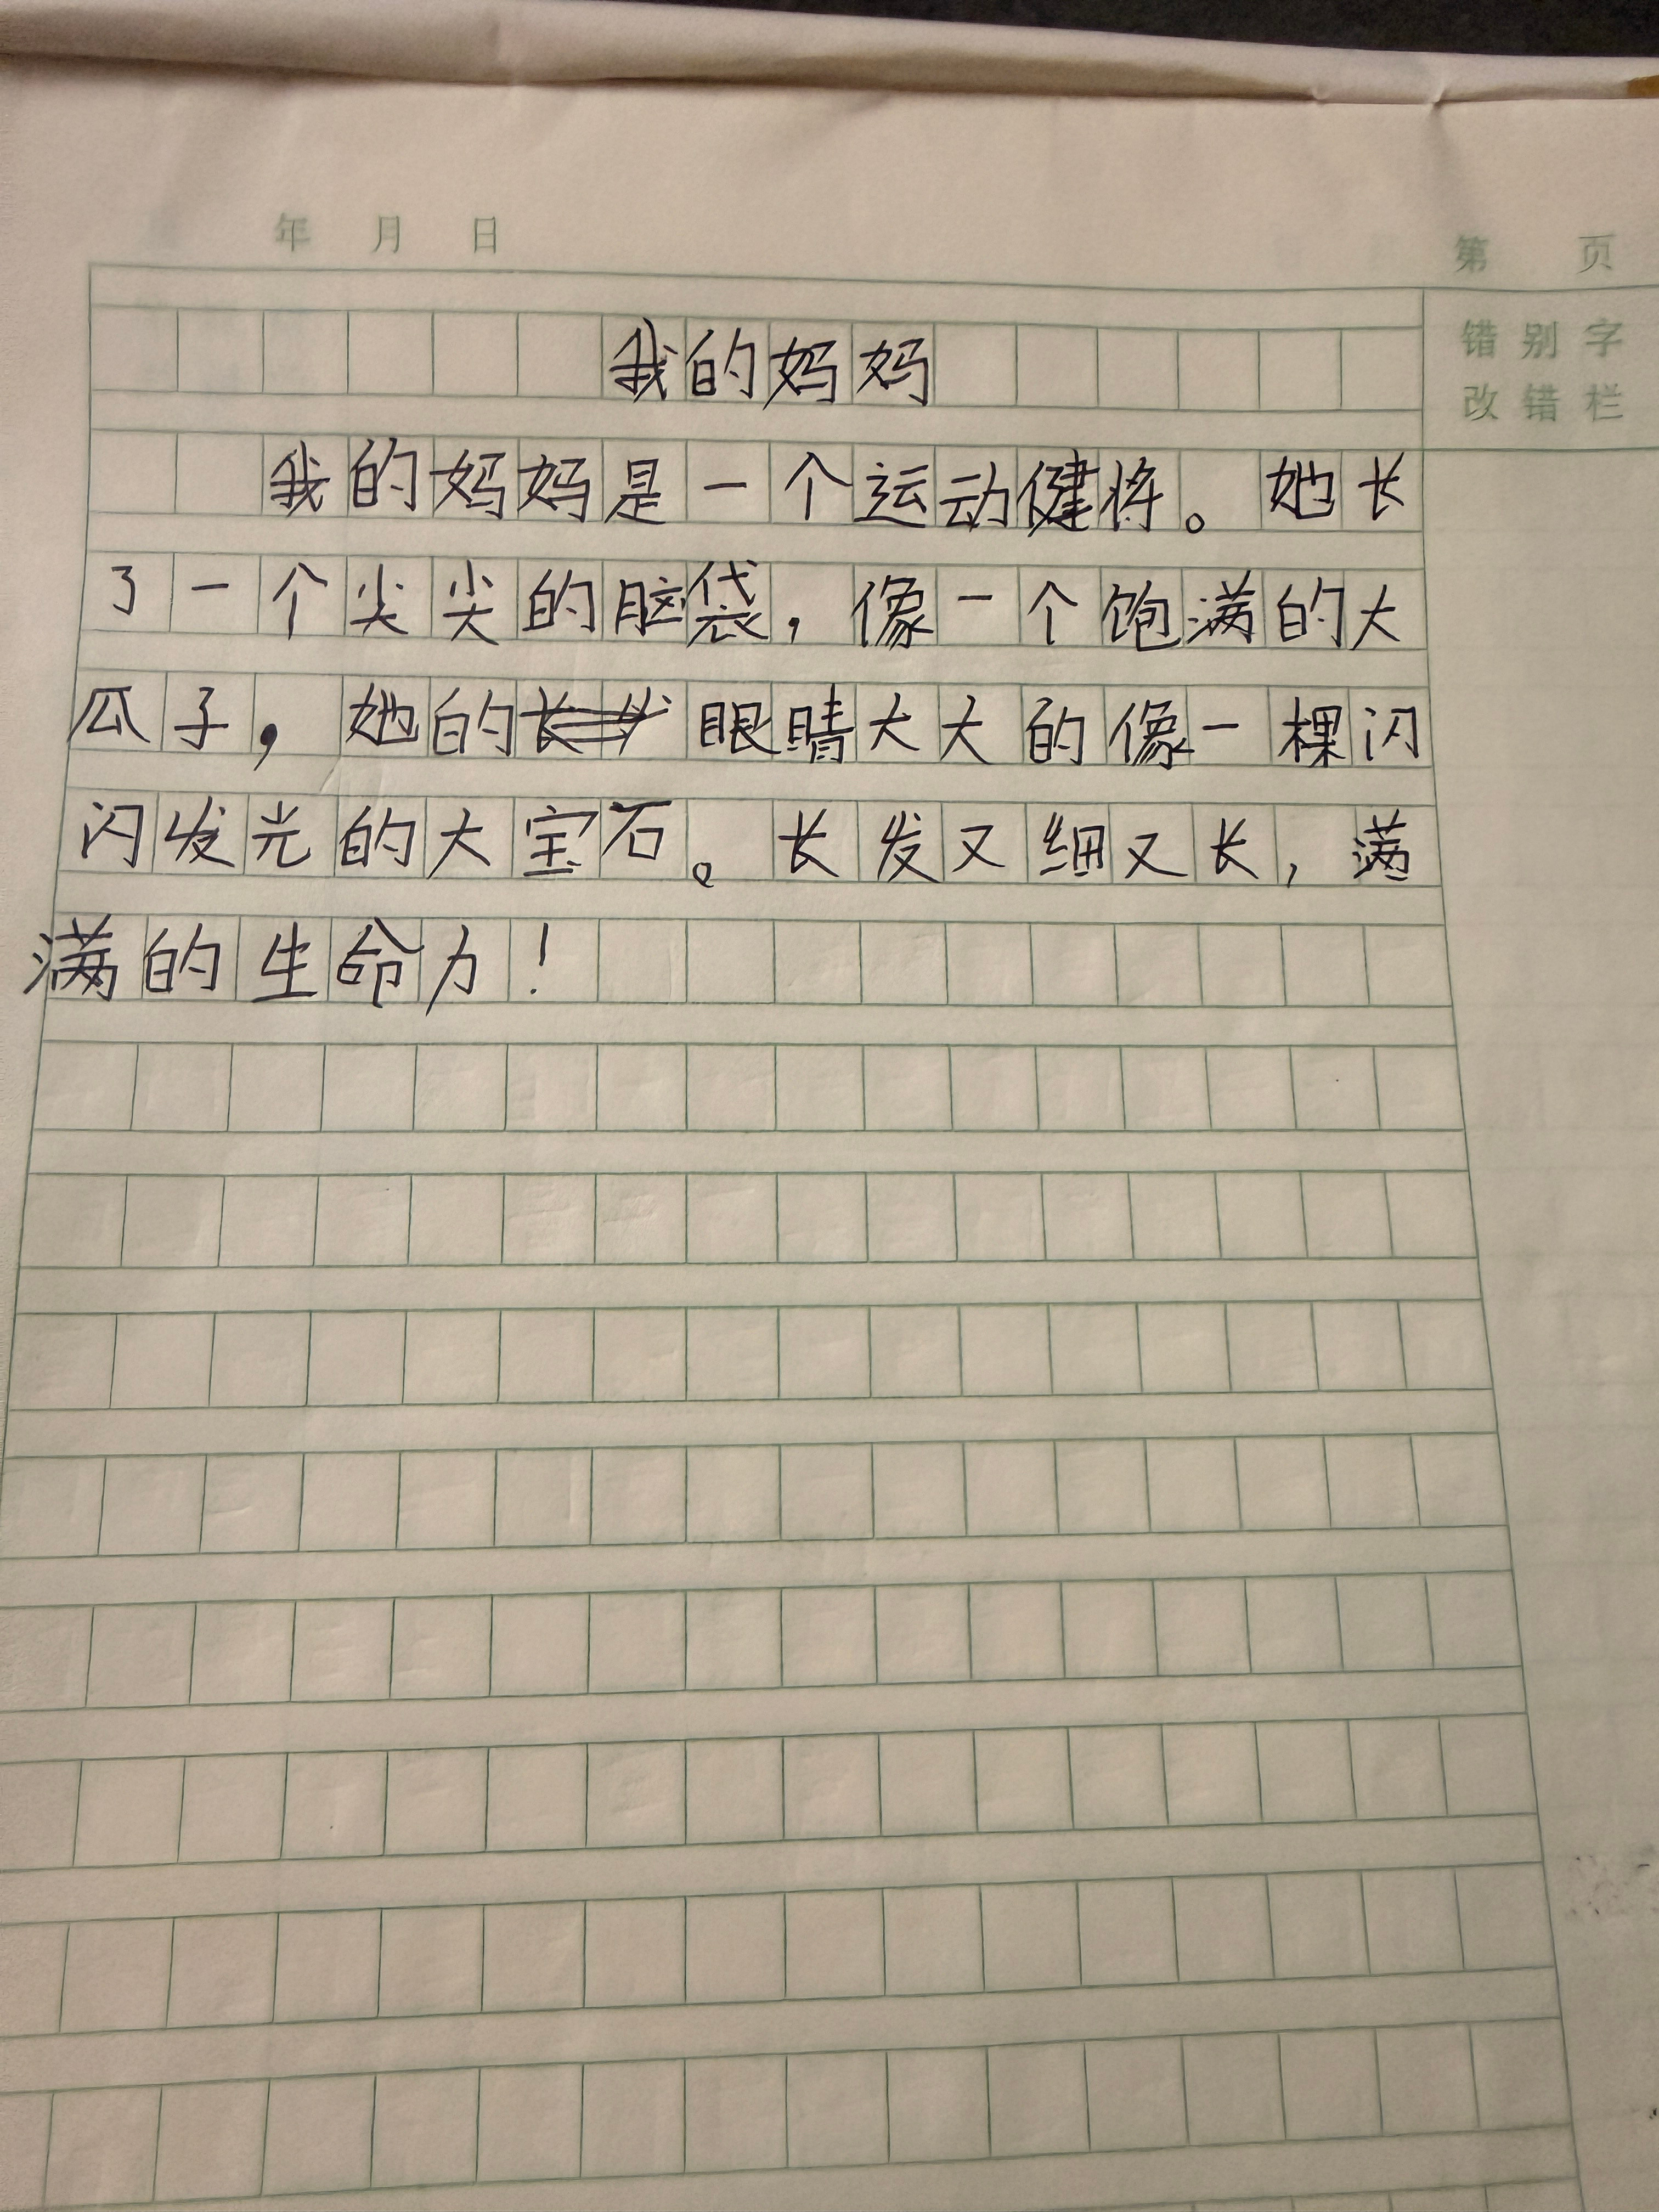 年 月 日
第 页
错别字
改错栏
我的妈妈
我的妈妈是一个运动健将。她长
了一个尖尖的脑袋，像一个饱满的大
瓜子，她的眼睛大大的像一棵闪
闪发光的大宝石。长发又细又长，满
满的生命力！